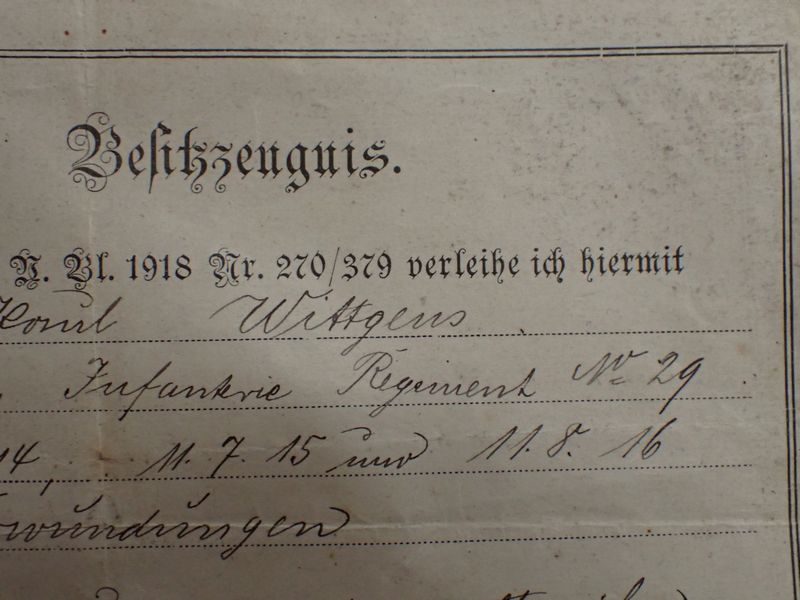 Besitzzeugnis.
N. Bl. 1918 Nr. 270/379 verleihe ich hiermit
Wittgens
Infanterie Regiment No 29
14, 11. 7. 15 und 11. 8. 16
wundungen